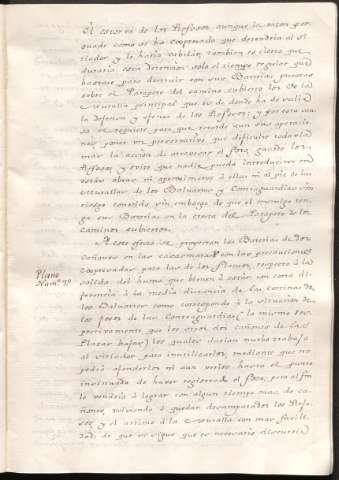 El estorvo de los Refosos aunque la razon per-
suade como se ha expresado que detendria al si-
tiador y le haria vacilar, tambien es cierto que
duraria esta detencion solo el tiempo regular que
bastase para destruir con sus Baterias, puestas
sobre el Parapeto del camino cubierto los de la
muralla principal que es de donde ha de salir
la defensa y ofensa de los Refosos; y por esta cau-
sa se requiere para que consiga aun sus operacio-
nes poner un preservativo que dificulte toda la
mas la accion de atravesar el foso, guarde los
Refosos y evite que nadie pueda introducirse en
ellos ni aproximarse à ellas ni al pie de las
murallas, de los Baluartes y Contraguardias sin
riesgo conocido sin embargo de que el enemigo ten-
ga sus Baterias en la cresta del Parapeto de los
caminos cubiertos.
A este efecto se proyectan las Baterias de dos
Plano
Num.º 7.º
Cañones en las casasmatas con las precauciones
expresadas para las de los flancos, respecto à la
salida del humo que tienen à estas con corta di-
ferencia à la media distancia de las cortinas de
los Baluartes como corresponde à la situacion de
los fosos de las Contraguardias (lo mismo res-
pectivamente que los otros dos cañones de las
Plazas bajas) los quales darian mucho trabajo
al sitiador para inutilizarlos, mediante que no
podrà ofenderlos ni aun verlos hasta el punto
inclinado de haver registrado el foso, pero al fin
lo vendria à lograr con algun tiempo mas de ca-
ñones, volviendo à quedar desamparados los Refo-
sos, y el arrimo à la muralla con mas facili-
dad; de que se sigue que es necesario discurrir